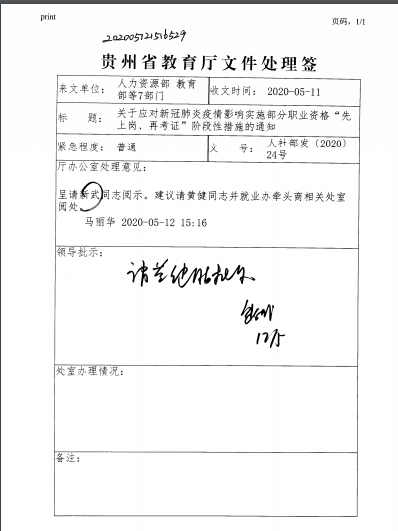 print
页码，1/1
20200512151652​9
贵州省教育厅文件处理签
来文单位： 人力资源部 教育部等7部门 收文时间： 2020-05-11
标 题： 关于应对新冠肺炎疫情影响实施部分职业资格“先
上岗、再考证”阶段性措施的通知
紧急程度： 普通 文 号： 人社部发〔2020〕24号
厅办公室处理意见：
呈请新武同志阅示。建议请黄健同志并就业办牵头商相关处室
阅处。
马丽华 2020-05-12 15:16
领导批示：
处室办理情况：
备注：